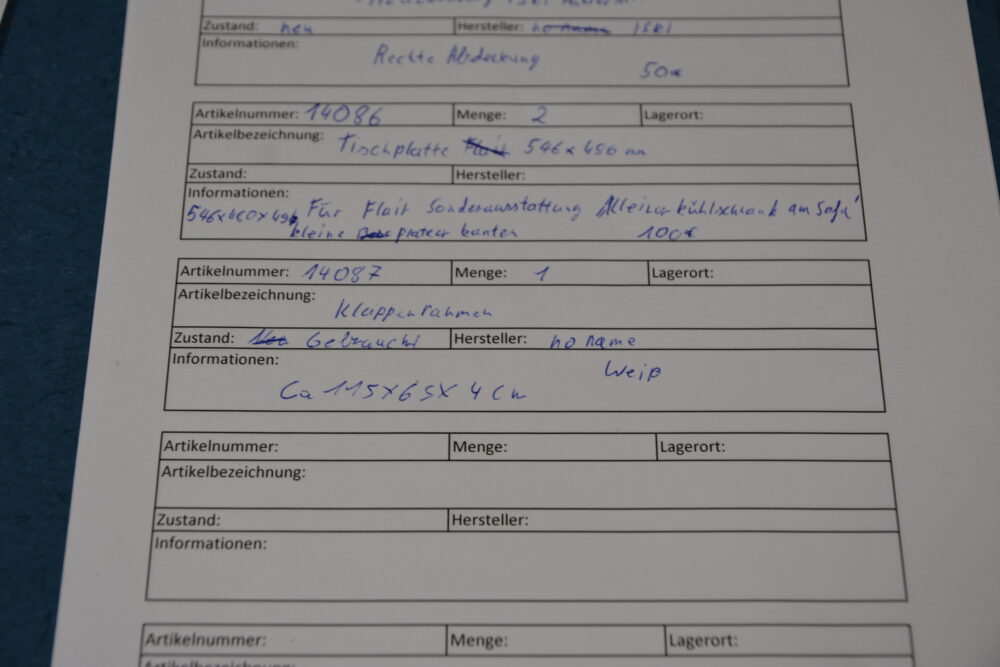 Zustand: neu Hersteller: no name
Informationen:
Rechte Abdeckung
50€
Artikelnummer: 14086 Menge: 2 Lagerort:
Artikelbezeichnung:
Tischplatte Flair 546 x 456 mm
Zustand: Hersteller:
Informationen:
Für Flair Sonderausstattung kleiner kühlschrank am Sofa
kleine kanten 100€
Artikelnummer: 14087 Menge: 1 Lagerort:
Artikelbezeichnung:
Klappenrahmen
Zustand: Gebraucht Hersteller: no name
Informationen:
Weiß
Ca 115x65x4 Cm
Artikelnummer: Menge: Lagerort:
Artikelbezeichnung:
Zustand: Hersteller:
Informationen:
Artikelnummer: Menge: Lagerort:
Artikelbezeichnung: